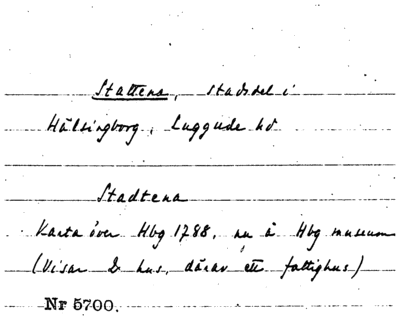 Stattena, stadsdel i
Hälsingborg, Luggude hd
Stadtena
Karta över Hbg 1788, nu å Hbg museum
(Visar 2 hus, därav ett fattighus)
Nr 5700.